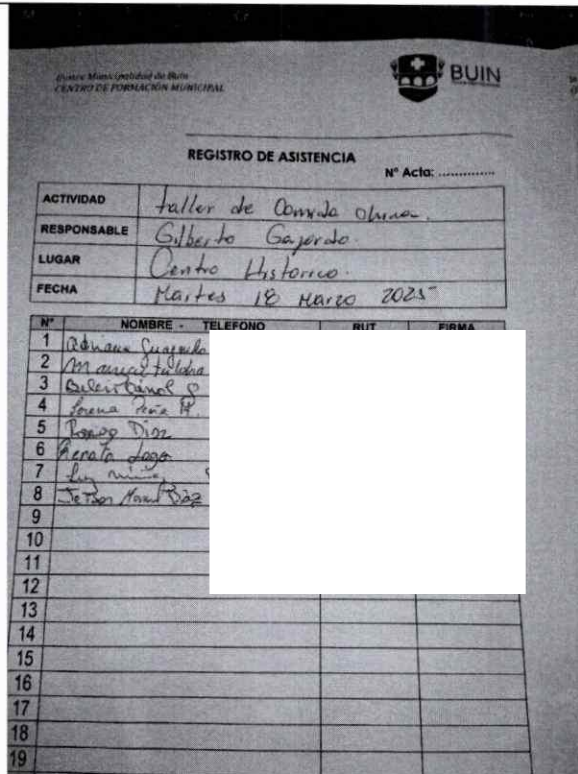 Ilustre Municipalidad de Buin
CENTRO DE FORMACIÓN MUNICIPAL
BUIN
REGISTRO DE ASISTENCIA
N° Acta: ..............
ACTIVIDAD taller de Comida China.
RESPONSABLE Gilberto Gajardo.
LUGAR Centro Historico.
FECHA Martes 18 Marzo 2025
N° NOMBRE - TELEFONO RUT FIRMA
1 Adriana
2
3
4 Lorena Peña M.
5 Diaz
6 Renata Lagos
7 Luz
8 Jetson Diaz
9
10
11
12
13
14
15
16
17
18
19